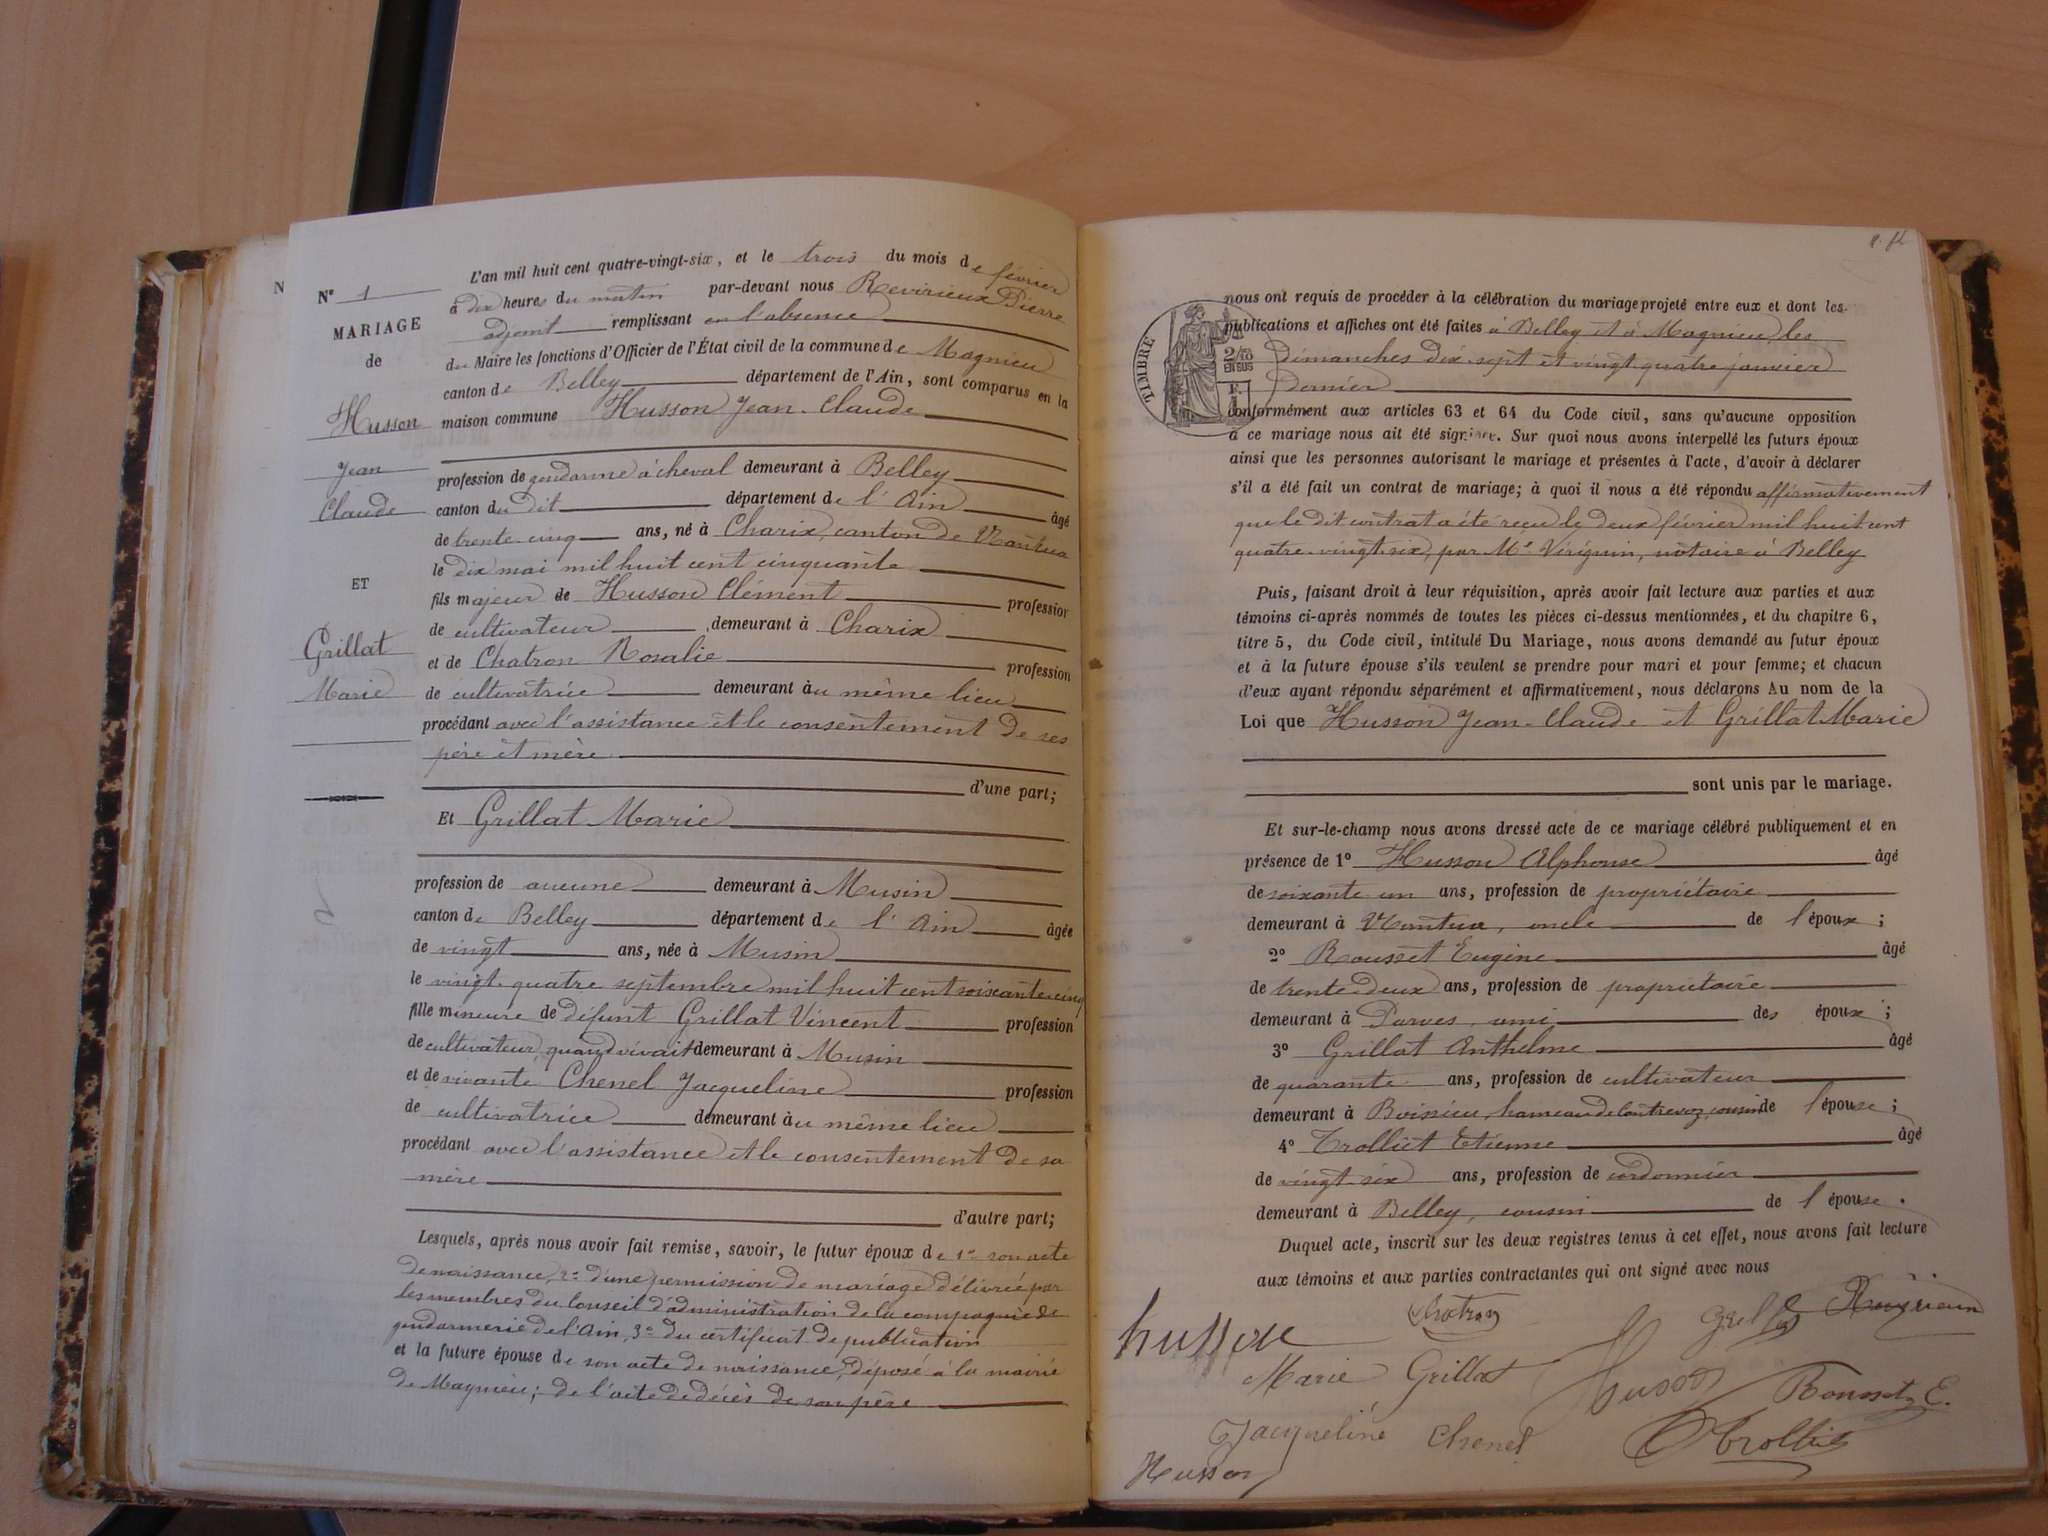 N
N° 1
MARIAGE
de
Husson
Jean
Claude
ET
Grillat
Marie
L'an mil huit cent quatre-vingt-six, et le trois du mois de février
à dix heures du matin par-devant nous Revirieux Pierre
adjoint remplissant en l'absence
du Maire les fonctions d'Officier de l'État civil de la commune de Magnieu
canton de Belley département de l'Ain, sont comparus en la
maison commune Husson Jean-Claude
profession de gendarme à cheval demeurant à Belley
canton du dit département de l'Ain âgé
de trente-cinq ans, né à Charix, canton de Nantua
le dix mai mil huit cent cinquante
fils majeur de Husson Clément profession
de cultivateur demeurant à Charix
et de Chatron Rosalie profession
de cultivatrice demeurant au même lieu
procédant avec l'assistance et le consentement de ses
père et mère
d'une part;
Et Grillat Marie
profession de aucune demeurant à Musin
canton de Belley département de l'Ain âgée
de vingt ans, née à Musin
le vingt-quatre septembre mil huit cent soixante-cinq
fille mineure de défunt Grillat Vincent profession
de cultivateur, quand vivait demeurant à Musin
et de vivante Chenel Jacqueline profession
de cultivatrice demeurant au même lieu
procédant avec l'assistance et le consentement de sa
mère
d'autre part;
Lesquels, après nous avoir fait remise, savoir, le futur époux de 1° son acte
de naissance, 2° d'une permission de mariage délivrée par
les membres du Conseil d'administration de la compagnie de
gendarmerie de l'Ain, 3° du certificat de publication
et la future épouse de son acte de naissance, déposé à la mairie
de Magnieu; de l'acte de décès de son père
TIMBRE
2/10
EN SUS
nous ont requis de procéder à la célébration du mariage projeté entre eux et dont les
publications et affiches ont été faites à Belley et à Magnieu, les
Dimanches dix-sept et vingt-quatre janvier
dernier
conformément aux articles 63 et 64 du Code civil, sans qu'aucune opposition
à ce mariage nous ait été signifiée. Sur quoi nous avons interpellé les futurs époux
ainsi que les personnes autorisant le mariage et présentes à l'acte, d'avoir à déclarer
s'il a été fait un contrat de mariage; à quoi il nous a été répondu affirmativement
que le dit contrat a été reçu le deux février mil huit cent
quatre-vingt-six, par Me Viriguin, notaire à Belley
Puis, faisant droit à leur réquisition, après avoir fait lecture aux parties et aux
témoins ci-après nommés de toutes les pièces ci-dessus mentionnées, et du chapitre 6,
titre 5, du Code civil, intitulé Du Mariage, nous avons demandé au futur époux
et à la future épouse s'ils veulent se prendre pour mari et pour femme; et chacun
d'eux ayant répondu séparément et affirmativement, nous déclarons Au nom de la
Loi que Husson Jean-Claude et Grillat Marie
sont unis par le mariage.
Et sur-le-champ nous avons dressé acte de ce mariage célébré publiquement et en
présence de 1° Husson Alphonse âgé
de soixante un ans, profession de propriétaire
demeurant à Nantua, oncle de l'époux;
2° Rousset Eugène âgé
de trente-deux ans, profession de propriétaire
demeurant à Parves, ami des époux;
3° Grillat Anthelme âgé
de quarante ans, profession de cultivateur
demeurant à Boissieu, hameau de Contrevoz, cousin de l'épouse;
4° Trolliet Etienne âgé
de vingt-six ans, profession de cordonnier
demeurant à Belley, cousin de l'épouse.
Duquel acte, inscrit sur les deux registres tenus à cet effet, nous avons fait lecture
aux témoins et aux parties contractantes qui ont signé avec nous
husson Chatron Revirieux
Marie Grillat Husson Rousset E.
Jacqueline Chenel Trolliet
Husson